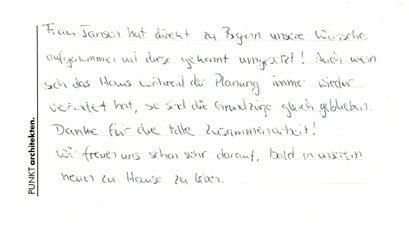 Frau Jansen hat direkt zu Beginn unsere Wünsche
aufgenommen und diese gekonnt umgesetzt! Auch wenn
sich das Haus während der Planung immer wieder
verändert hat, so sind die Grundzüge gleich geblieben.
Danke für die tolle Zusammenarbeit!
Wir freuen uns schon sehr darauf, bald in unserem
neuen zu Hause zu leben.
PUNKT architekten.